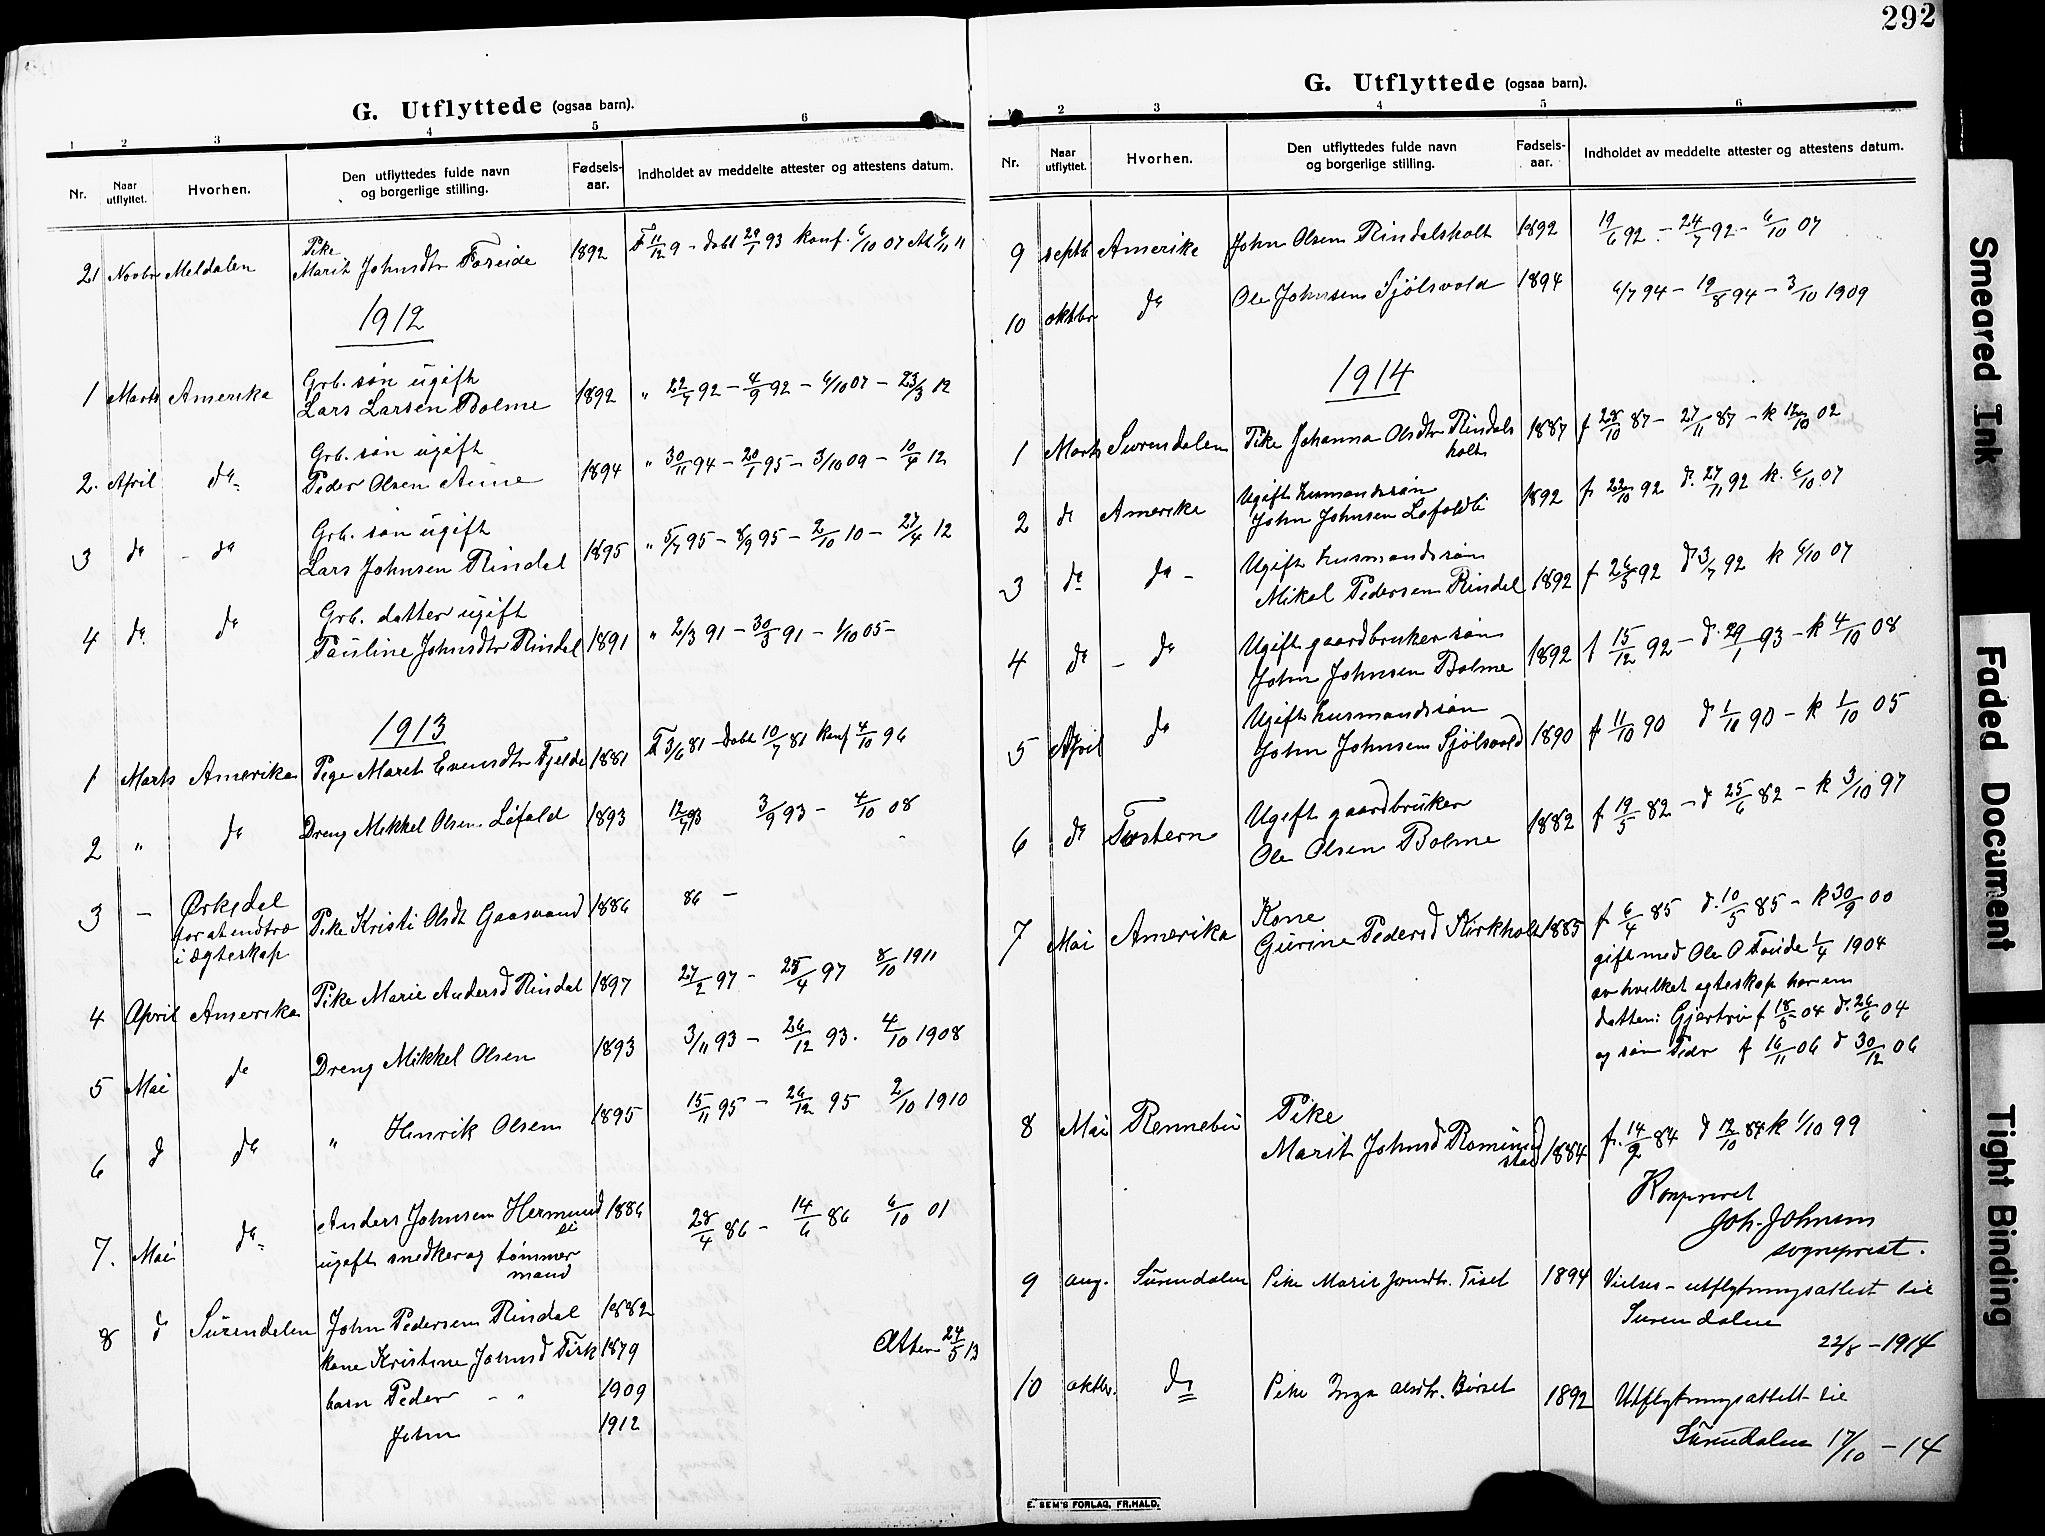 292
G. Utflyttede (ogsaa barn).
1 2 3 4 5 6
Nr. Naar utflyttet. Hvorhen. Den utflyttedes fulde navn og borgerlige stilling. Fødsels-aar. Indholdet av meddelte attester og attestens datum.
Pike
21 Novbr Meldalen Marit Johnsdtr Foreide 1892 F 11/12 9 - døbt 29/1 93 konf. 6/10 07
1912
Grb. søn ugift
1 Marts Amerika Lars Larsen Bolme 1892 " 22/7 92 - 4/9 92 - 6/10 07 - 23/3 12
Grb. søn ugift
2. April do Peder Olsen Aune 1894 " 30/11 94 - 20/1 95 - 3/10 09 - 10/4 12
Grb. søn ugift
3 do - do Lars Johnsen Rindal 1895 " 5/7 95 - 8/9 95 - 2/10 10 - 27/4 12
Grb. datter ugift
4 do do Pauline Johnsdtr Rindal 1891 " 2/3 91 - 30/3 91 - 1/10 05 -
1913
1 Marts Amerika Pige Maret Evensdtr Fjelde 1881 F 3/6 81 - døbt 10/7 81 konf 4/10 96
2 " do Dreng Mikkel Olsen Løfald 1893 12/7 93 3/9 93 - 4/10 08
3 - Ørkedal Pike Kristi Olsdt Gaasvand 1886 86 -
for at indtræ
i ægteskap
4 April Amerika Pike Marie Andersd Rindal 1897 27/2 97 - 25/4 97 8/10 1911
5 Mai do Dreng Mikkel Olsen 1893 3/11 93 - 26/12 93. 4/10 1908
6 d do " Henrik Olsen 1895 15/11 95 - 26/12 95 2/10 1910
7. Mai do Anders Johnsen Hermund 1886 28/4 86 - 14/6 86 6/10 01
ugift snedker og tømmer
mand
8 d Surendalen John Pedersen Rindal 1882
kone Kristine Johnsd Tisk 1879 Atter 24/5 13
barn Peder - " 1909
John 1912
G. Utflyttede (ogsaa barn).
2 3 4 5 6
Nr. Naar utflyttet. Hvorhen. Den utflyttedes fulde navn og borgerlige stilling. Fødsels-aar. Indholdet av meddelte attester og attestens datum.
9 septb Amerika John Olsen Rindalsholt 1892 19/6 92 - 24/7 92 - 6/10 07
10 oktbr do Ole Johnsen Sjølsvold 1894 6/7 94 - 19/8 94 - 3/10 1909
1914
1 Marts Surendalen Pike Johanna Olsdtr Rindals 1887 f 28/10 87 - 27/11 87 - k 02
holt
Ugift husmandssøn
2 do Amerika John Johnsen Lofaldli 1892 f 22/10 92 d. 27/11 92 k. 6/10 07
Ugift husmandssøn
3 do do - Mikal Pedersen Rindal 1892 f 26/5 92 d 3/7 92 k 6/10 07
Ugift gaardbruker søn
4 do - do John Johnsen Bolme 1892 f 15/12 92 - d. 29/1 93 - k 4/10 08
Ugift husmandssøn
5 April do John Johnsen Sjølsvold 1890 f 11/10 90 d 1/11 90 - k 1/10 05
Ugift gaardbruker
6 do Tustern Ole Olsen Bolme 1882 f 19/5 82 - d 25/6 82 - k 3/10 97
Kone
7 Mai Amerika Gurine Pedersd Kirkholt 1885 f 6/4 85 d. 10/5 85 - k 30/9 00
gift med Ole O Foride 1/4 1904
av hvilket egteskap har en
datter: Gjertru f 18/5 04 d. 26/6 04
og søn Peder f 16/11 06 d 30/12 06
Pike
8 Mai Rennebu Marit Johnsd Romund 1884 f. 14/9 84 d 12/10 84 k 1/10 99
stad
Konfereret
Joh. Johnsen
sogneprest.
9 aug. Surendalen Pike Marit Jonsdtr. Tiset 1894 Vielses - utflytningsattest til
Surendalen
22/8 - 1914
10 oktbr. do Pike Inga Olsdtr. Børset 1892 Utflytningsattest til
Surendalen 17/10 - 14
E. SEM'S FORLAG, FR.HALD.
Smeared Ink
Faded Document
Tight Binding